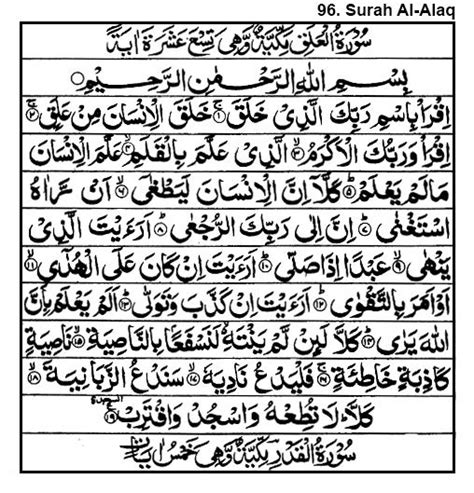 96. Surah Al-Alaq
سُورَةُ الْعَلَقِ مَكِّيَّةٌ وَّهِيَ تِسْعَ عَشْرَةَ اٰيَةً
بِسْمِ اللهِ الرَّحْمٰنِ الرَّحِيْمِ ○
اِقْرَاْ بِاسْمِ رَبِّكَ الَّذِيْ خَلَقَ ۚ﴿۱﴾ خَلَقَ الْاِنْسَانَ مِنْ عَلَقٍ ۚ﴿۲﴾
اِقْرَاْ وَرَبُّكَ الْاَكْرَمُ ﴿۳﴾ الَّذِيْ عَلَّمَ بِالْقَلَمِ ﴿۴﴾ عَلَّمَ الْاِنْسَانَ
مَا لَمْ يَعْلَمْ ﴿۵﴾ كَلَّاۤ اِنَّ الْاِنْسَانَ لَيَطْغٰٓى ﴿۶﴾ اَنْ رَّاٰهُ
اسْتَغْنٰى ﴿۷﴾ اِنَّ اِلٰى رَبِّكَ الرُّجْعٰى ﴿۸﴾ اَرَءَيْتَ الَّذِيْ
يَنْهٰى ﴿۹﴾ عَبْدًا اِذَا صَلّٰى ﴿۱۰﴾ اَرَءَيْتَ اِنْ كَانَ عَلَى الْهُدٰٓى ﴿۱۱﴾
اَوْ اَمَرَ بِالتَّقْوٰى ﴿۱۲﴾ اَرَءَيْتَ اِنْ كَذَّبَ وَتَوَلّٰى ﴿۱۳﴾ اَلَمْ يَعْلَمْ بِاَنَّ
اللهَ يَرٰى ﴿۱۴﴾ كَلَّا لَىِٕنْ لَّمْ يَنْتَهِ لَنَسْفَعًۢا بِالنَّاصِيَةِ ﴿۱۵﴾ نَاصِيَةٍ
كَاذِبَةٍ خَاطِئَةٍ ﴿۱۶﴾ فَلْيَدْعُ نَادِيَهٗ ﴿۱۷﴾ سَنَدْعُ الزَّبَانِيَةَ ﴿۱۸﴾
كَلَّا لَا تُطِعْهُ وَاسْجُدْ وَاقْتَرِبْ ﴿۱۹﴾ السجدة
سُورَةُ الْقَدْرِ مَكِّيَّةٌ وَّهِيَ خَمْسُ اٰيَاتٍ